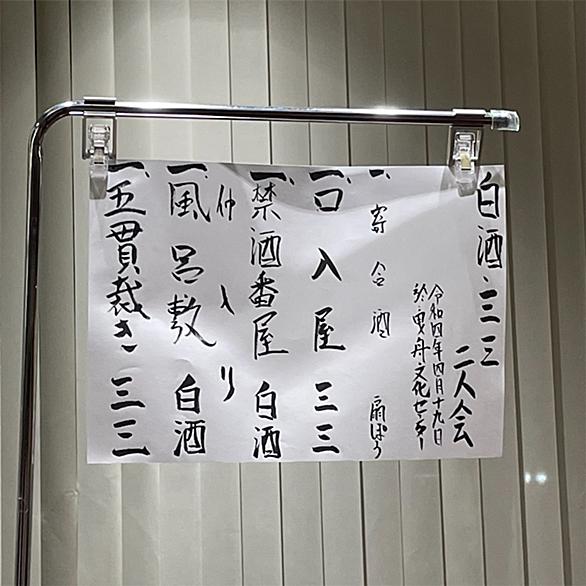 白酒・三三
二人会
令和四年四月十九日
於・曳舟文化センター
一、寄合酒 扇ぱう
一、口入屋 三三
一、禁酒番屋 白酒
仲入り
一、風呂敷 白酒
一、五貫裁き 三三